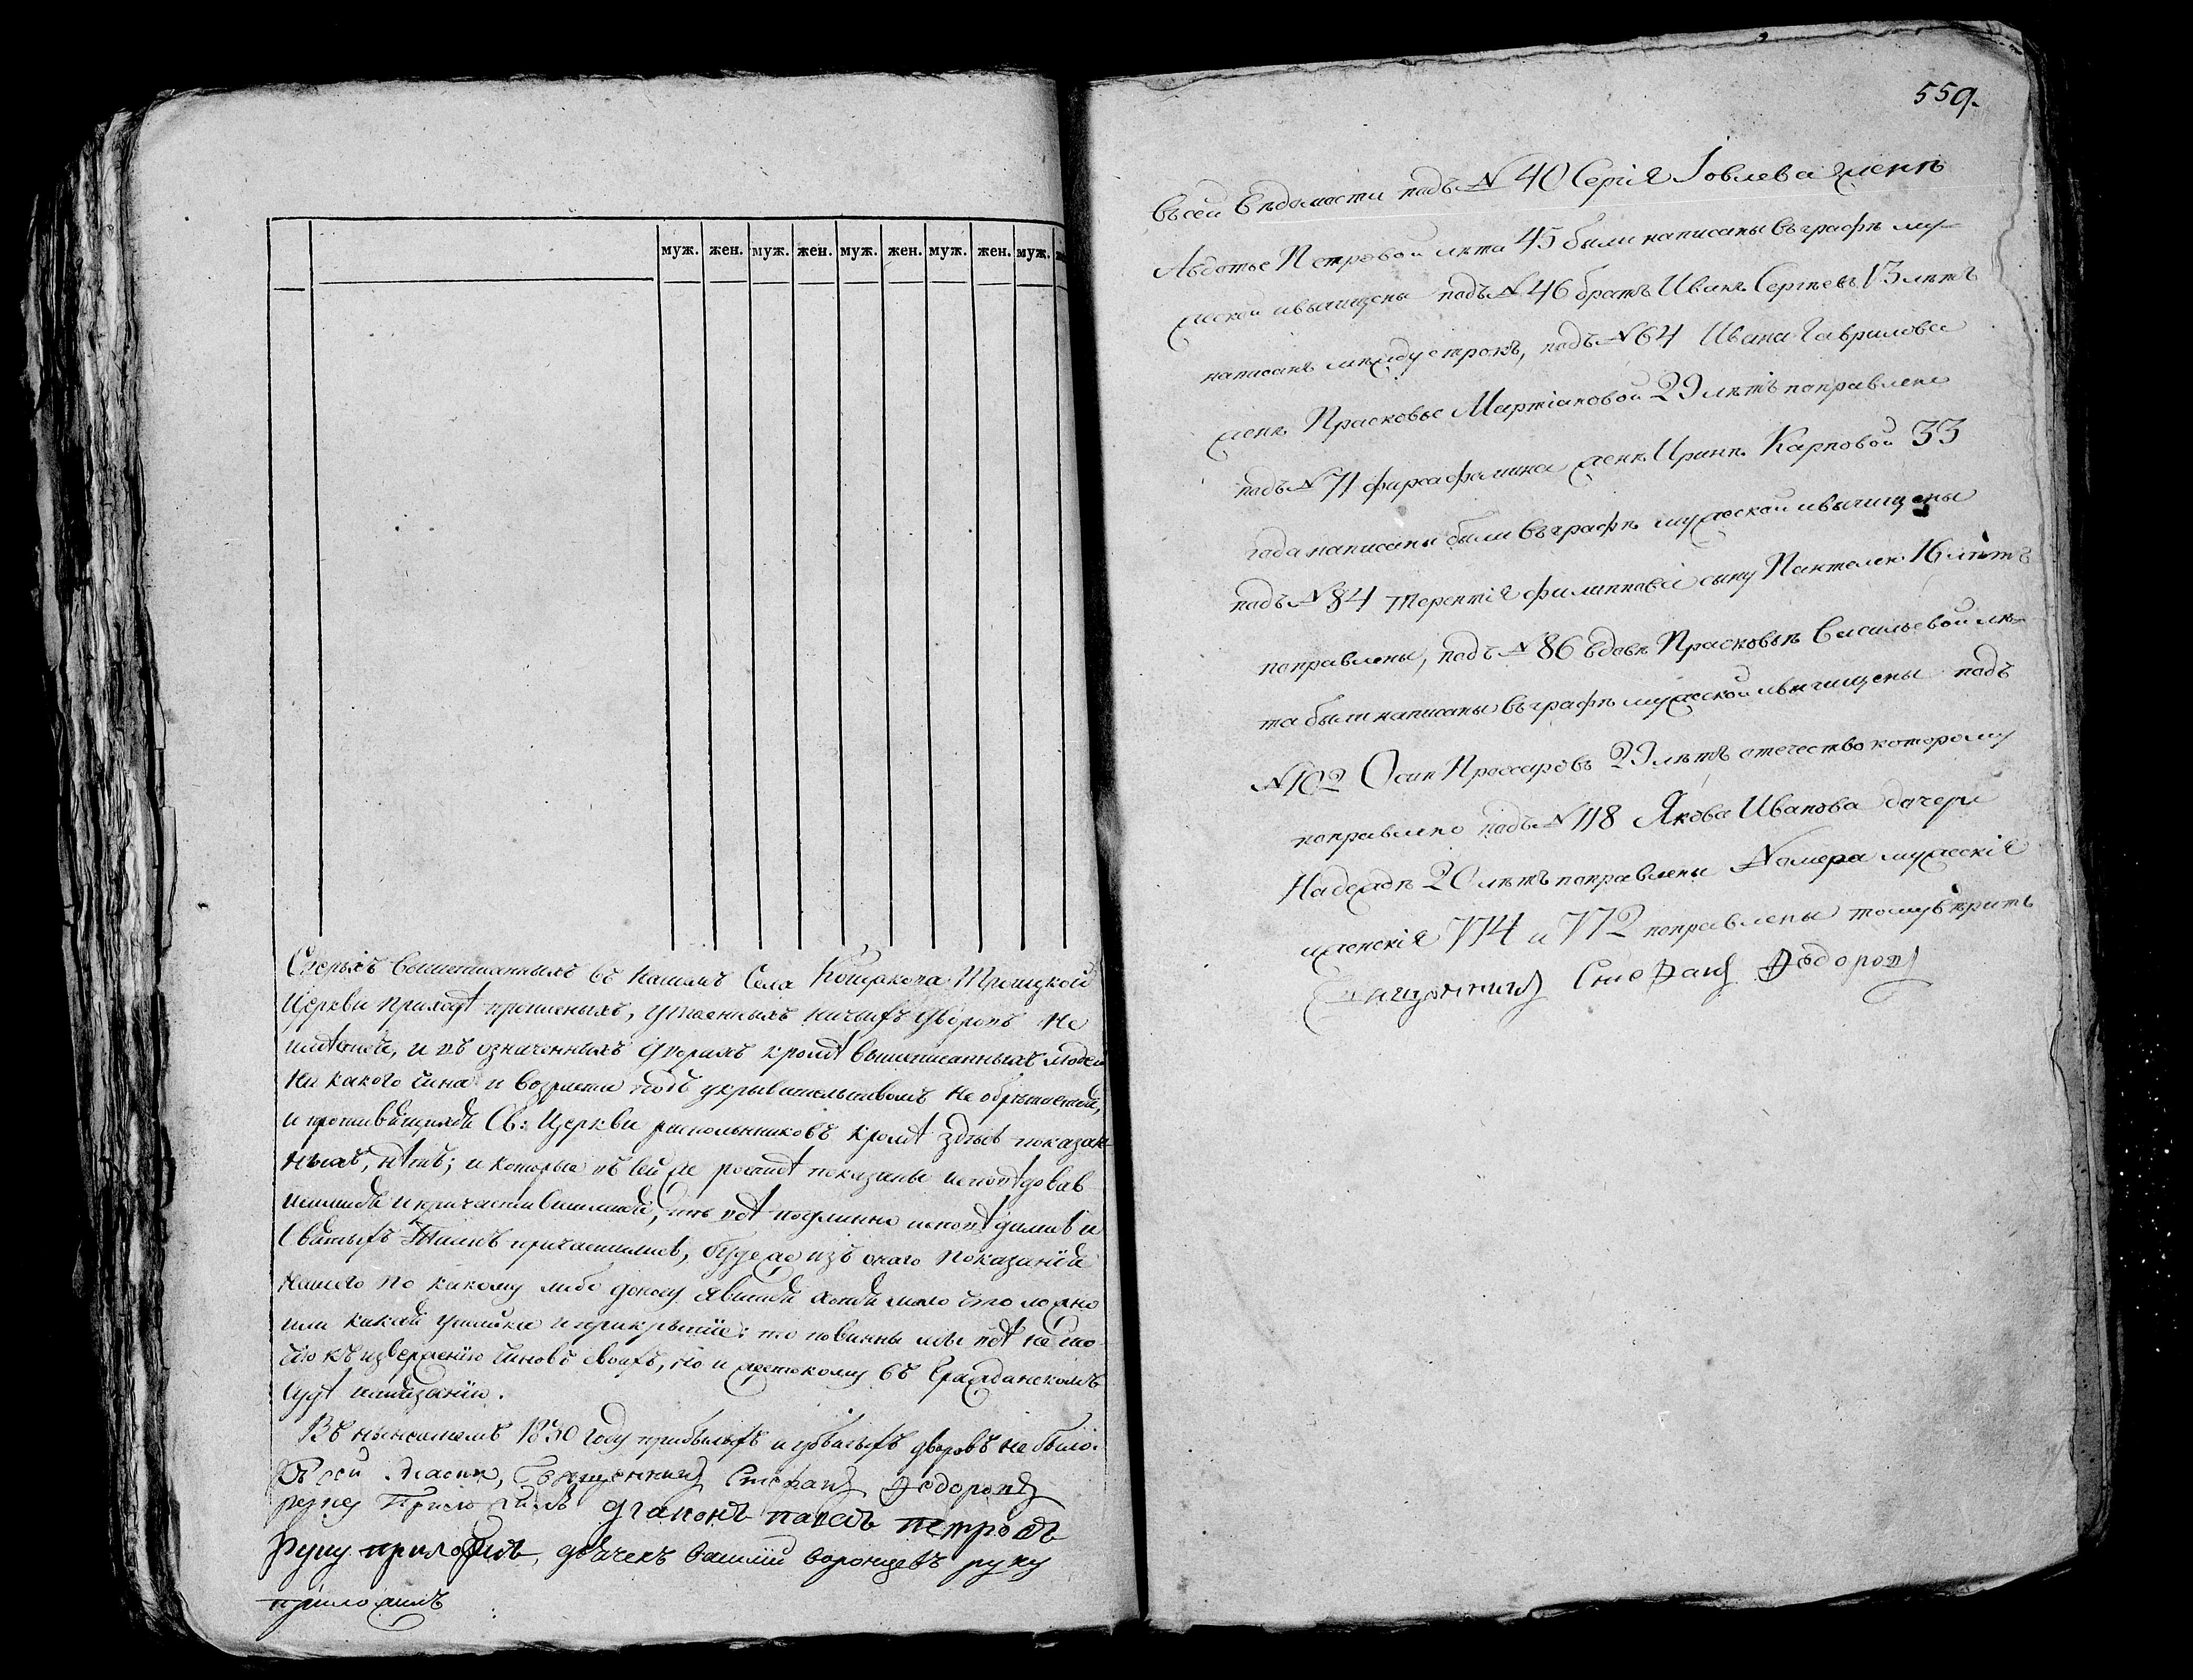 муж. жен. муж. жен. муж. жен. муж. жен. муж.
Сверхъ вышеписанныхъ въ нашемъ Села Троицкой
Церкви приходѣ прописныхъ, утаенныхъ ничьихъ дворовъ не
имѣется, и въ означенныхъ дворахъ кромѣ вышеписанныхъ людей
ни какого чина и возраста подъ укрывательствомъ не обрѣтается,
и противящихся Св: Церкви раскольниковъ кромѣ здѣсь показан-
ныхъ, нѣтъ; и которые въ сей же росписѣ показаны исповѣдовав
шимися и причастившимися, тѣ всѣ подлинно исповѣдались и
Святыхъ Таинъ причастились, буде же изъ онаго показанія
нашего по какому либо доносу явится хотя мало что ложно
или какая утайка и прикрытіе: то повинны мы всѣ не то-
чію къ изверженію чиновъ своихъ, но и жестокому въ Гражданскомъ
судѣ наказанію.
Въ нынешнемъ 1830 году прибылыхъ и убылыхъ дворовъ не было.
Къ сей Священникъ Стефанъ Федоровъ
руку приложилъ диаконъ павелъ петровъ
руку приложилъ, дьячекъ василий воронцевъ руку
приложилъ
559.
Въ сей вѣдомости подъ № 40 Сергія Іовлева женѣ
Авдотье Петровой лѣта 45 были написаны въ графѣ му-
жской и вычищены подъ № 46 братъ Иванъ Сергѣевъ 13 лѣтъ
написанъ между строкъ, подъ № 64 Ивана Гаврилова
женѣ Прасковье Мартіановой 29 лѣтъ поправлено
подъ № 71 женѣ Иринѣ Карповой 33
года написаны были въ графѣ мужской и вычищены
подъ № 84 Терентія филиппова сыну Пантелею 16 лѣтъ
поправлены, подъ № 86 вдовѣ Прасковьѣ Васильевой лѣ-
та были написаны въ графѣ мужской и вычищены подъ
№ 102 Осип Прохоровъ 29 лѣтъ отечество которому
поправлено подъ № 118 Якова Иванова дочери
Надеждѣ 20 лѣтъ поправлены Номера мужскія
женскія 774 и 772 поправлены тому вѣрить
Священникъ Стефанъ Федоровъ